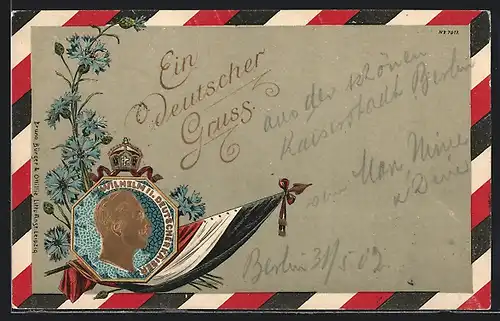 No 7017.
Ein
deutscher
Gruss.
aus der schönen
Kaiserstadt Berlin
Berlin 31/5 02
WILHELM II. DEUTSCHER KAISER
Bruno Bürger & Ottillie, Lith. Anst. Leipzig